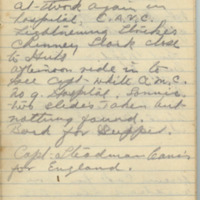 at work again in
hospital, C.A.V.C.
Lightnening Strikes
Chimney Stack close
to Huts
afternoon ride in to
see Capt White A.M.C.
No 9 Hospital,
two slides taken but
nothing found.
Back for Supper.
Capt: Steadman
for England.